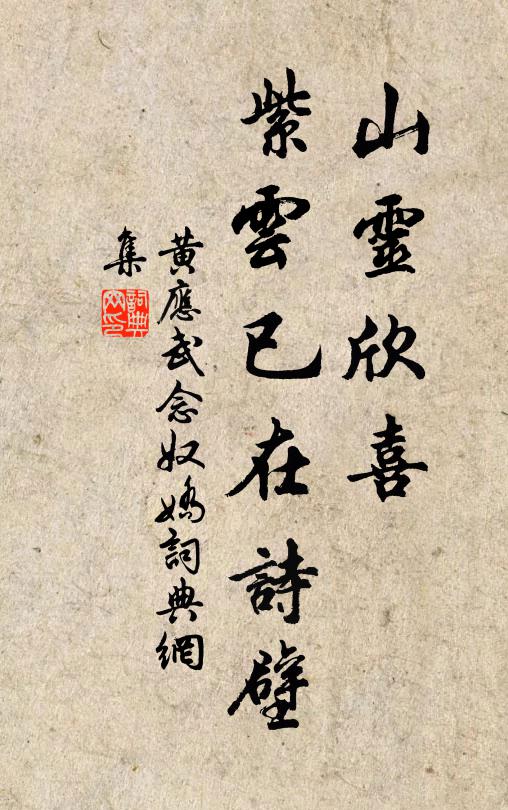 山靈欣喜
紫雲已在詩壁
黃應武念奴嬌詞典網
集
詞典
网印